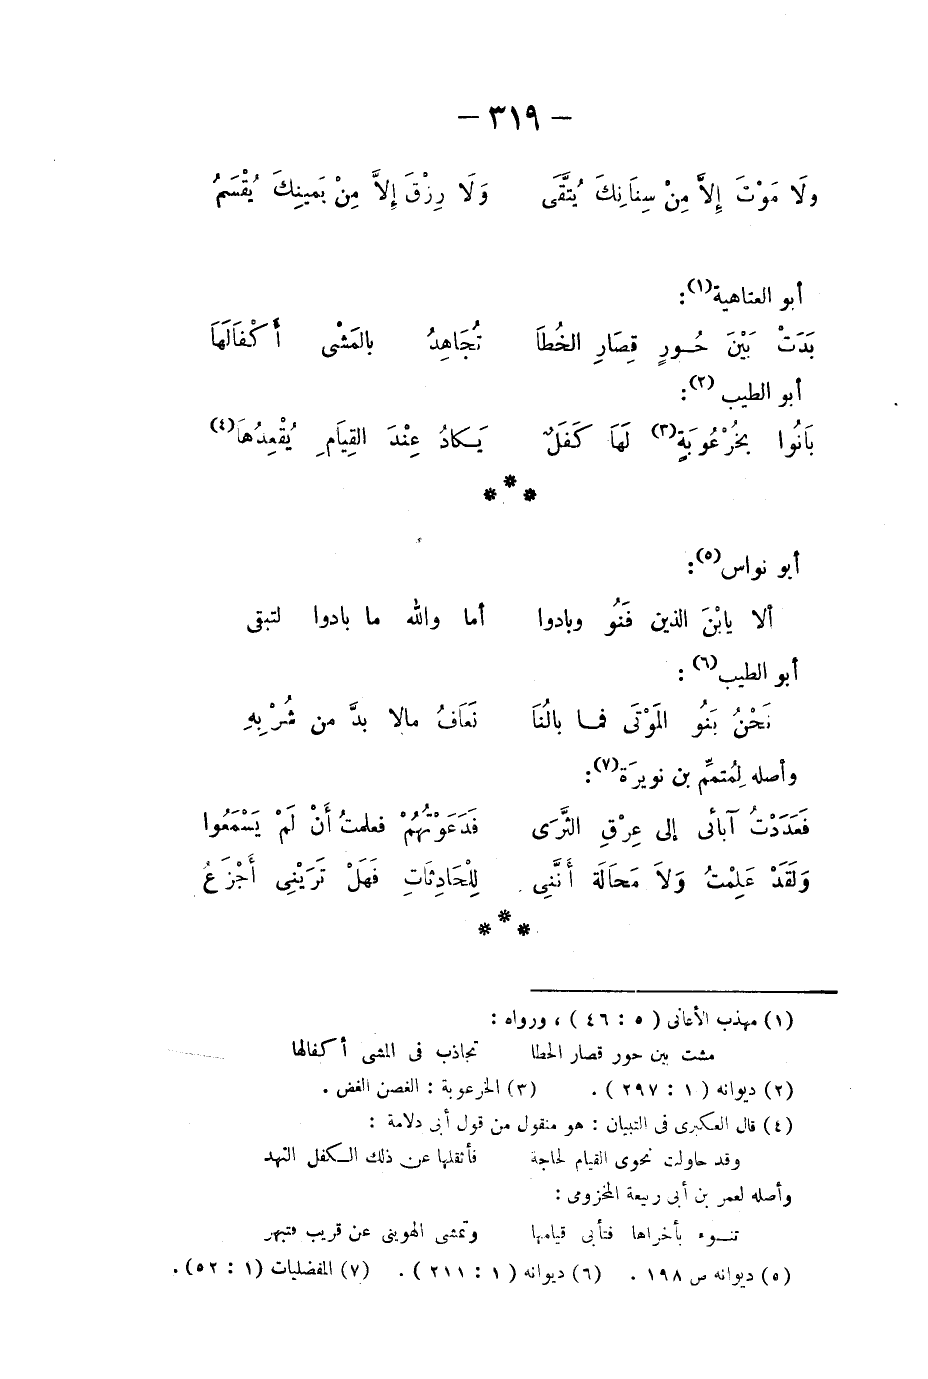 – ٣١٩ –
ولَا مَوْتَ إِلاَّ مِنْ سِنَانِكَ يُتَّقَى    وَلَا رِزْقَ إِلاَّ مِنْ يَمينِكَ يُقْسَمُ
أبو العتاهية(١):
بَدَتْ بَيْنَ حُـورٍ قِصَارِ الخُطَا    تُجَاهِدُ بالمَشْى أَكْفَالَهَا
أبو الطيب (٢):
بَانُوا بِخُرْعُوبَةٍ(٣) لَهَا كَفَلٌ    يَـكادُ عِنْدَ القِيَامِ يُقْعِدُهَا(٤)
***
أبو نواس(٥):
ألا يابْنَ الذين فَنُو وبادوا    أما والله ما بادوا لتبقى
أبو الطيب(٦) :
نَحْنُ بَنُو المَوْتَى فمـا بالُنَا    نَعَافُ مالا بدَّ من شُرْبِهِ
وأصله لِمُتمِّم بن نويرَة(٧):
فَعَدَدْتُ آبائى إلى عِرْقِ الثَّرَى    فَدَعَوْتُهُمْ فعلمتُ أَنْ لَمْ يَسْمَعُوا
وَلَقَدْ عَلِمْتُ وَلاَ مَحَالَةَ أَنَّنِى    لِلْحَادِثَاتِ فَهَلْ تَرَيْنِى أَجْزَعُ
***
(١) مهذب الأغانى ( ٥ : ٤٦ ) ، ورواه :
مشت بين حور قصار الخطا    تجاذب فى المشى أكفالها
(٢) ديوانه ( ١ : ٢٩٧ ) .    (٣) الخرعوبة : الغصن الغض .
(٤) قال العكبرى فى التبيان : هو منقول من قول أبى دلامة :
وقد حاولت نحوى القيام لحاجة    فأثقلها عن ذلك الـكفل النهد
وأصله لعمر بن أبى ربيعة المخزومى :
تنـوء بأخراها فتأبى قيامها    وتمشى الهوينى عن قريب فتبهر
(٥) ديوانه ص ١٩٨ .    (٦) ديوانه ( ١ : ٢١١ ) .    (٧) المفضليات (١ : ٥٢) .